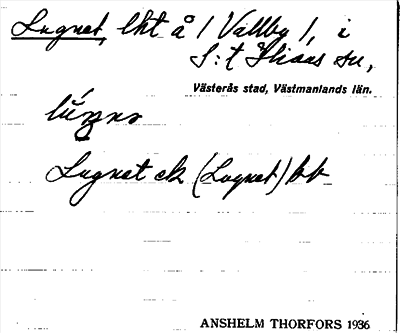 Lugnet, lht å /Vallby/, i
S:t Ilians sn,
Västerås stad, Västmanlands län.
Lugnet ek (Lugnet) bb
ANSHELM THORFORS 1936